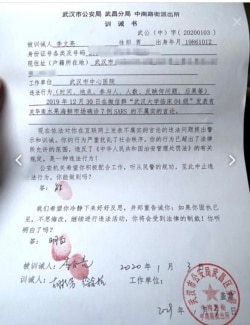 武汉市公安局 武昌分局 中南路街派出所
训 诫 书
武公（中）字（20200103）
被训诫人 李文亮 性别 男 出生年月 19861012
身份证件名称及号码
现住址（户籍所在地） 武汉市
工作单位 武汉市中心医院
违法行为（时间、地点、参与人、人数、反映何问题、后果等）
2019年12月30日在微信群“武汉大学临床04级”发表有
关华南水果海鲜市场确诊7例SARS的不属实的言论。
现在依法对你在互联网上发表不属实的言论的违法问题提出警
示和训诫。你的行为严重扰乱了社会秩序。你的行为已超出了法律
所允许的范围，违反了《中华人民共和国治安管理处罚法》的有关规
定，是一种违法行为！
公安机关希望你积极配合工作，听从民警的规劝，至此中止违
法行为。你能做到吗？
答：能
我们希望你冷静下来好好反思，并郑重告诫你：如果你固执己
见，不思悔改，继续进行违法活动，你将会受到法律的制裁！你听明
白了吗？
答：明白
被训诫人： 2020年1月3
训诫人：
工作单位：